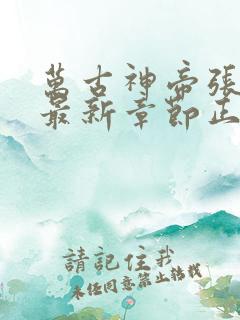 萬古神帝張
最新章節正
請記住我
未任同意禁止轉載